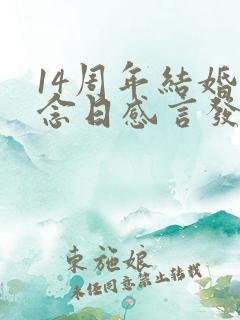 14周年結婚
念日感言發
東施娘
未经同意禁止转载